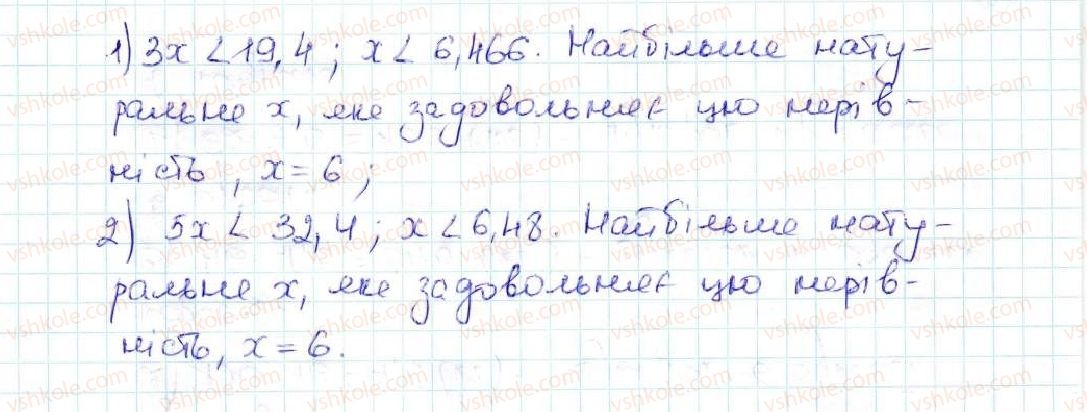 1) 3x < 19,4; x < 6,466. Найбільше нату-
ральне x, яке задовольняє цю нерів-
ність, x = 6;
2) 5x < 32,4; x < 6,48. Найбільше нату-
ральне x, яке задовольняє цю нерів-
ність, x = 6.